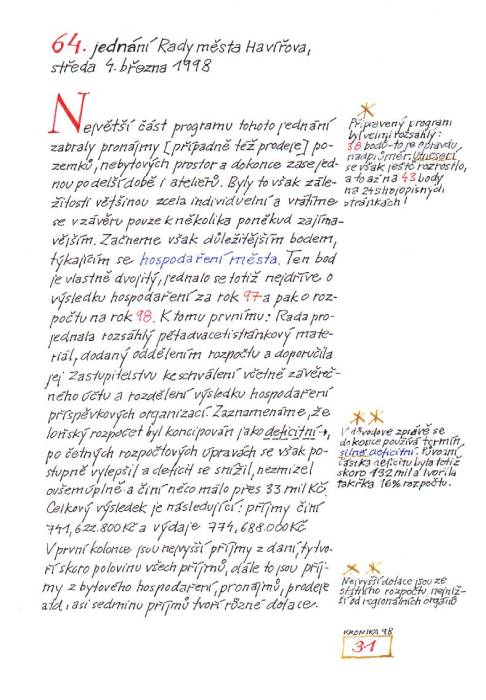 64. jednání Rady města Havířova,
středa 4. března 1998
Největší část programu tohoto jednání
zabraly pronájmy [případně též prodeje] po-
zemků, nebytových prostor a dokonce zase jed-
nou po delší době i ateliérů. Byly to však zále-
žitosti většinou zcela individuelní a vrátíme
se v závěru pouze k několika poněkud zajíma-
vějším. Začneme však důležitějším bodem,
týkajícím se hospodaření města. Ten bod
je vlastně dvojitý, jednalo se totiž nejdříve o
výsledku hospodaření za rok 97 a pak o roz-
počtu na rok 98. K tomu prvnímu: Rada pro-
jednala rozsáhlý pětadvacetistránkový mate-
riál, dodaný oddělením rozpočtu a doporučila
jej Zastupitelstvu ke schválení včetně závěreč-
ného účtu a rozdělení výsledku hospodaření
příspěvkových organizací. Zaznamenáme, že
loňský rozpočet byl koncipován jako deficitní →,
po četných rozpočtových úpravách se však po-
stupně vylepšil a deficit se snížil, nezmizel
ovšem úplně a činí něco málo přes 33 mil Kč.
Celkový výsledek je následující: příjmy činí
741,622.800 Kč a výdaje 774,688.000 Kč
V první kolonce jsou nejvyšší příjmy z daní, ty tvo-
ří skoro polovinu všech příjmů, dále to jsou příj-
my z bytového hospodaření, pronájmů, prodeje
atd. i asi sedminu příjmů tvoří různé dotace.
*
Připravený program
byl velmi rozsáhlý:
38 bodů - to je opravdu
nadprůměr.
se však ještě rozrostlo,
a to až na 43 body
na 24 strojopisných
stránkách!
**
V důvodové zprávě se
dokonce používá termín
silně deficitní. Původní
částka deficitu byla totiž
skoro 132 mil a tvořila
takřka 16% rozpočtu.
**
Nejvyšší dotace jsou ze
státního rozpočtu, nejniž-
ší od regionálních orgánů
KRONIKA 98
31